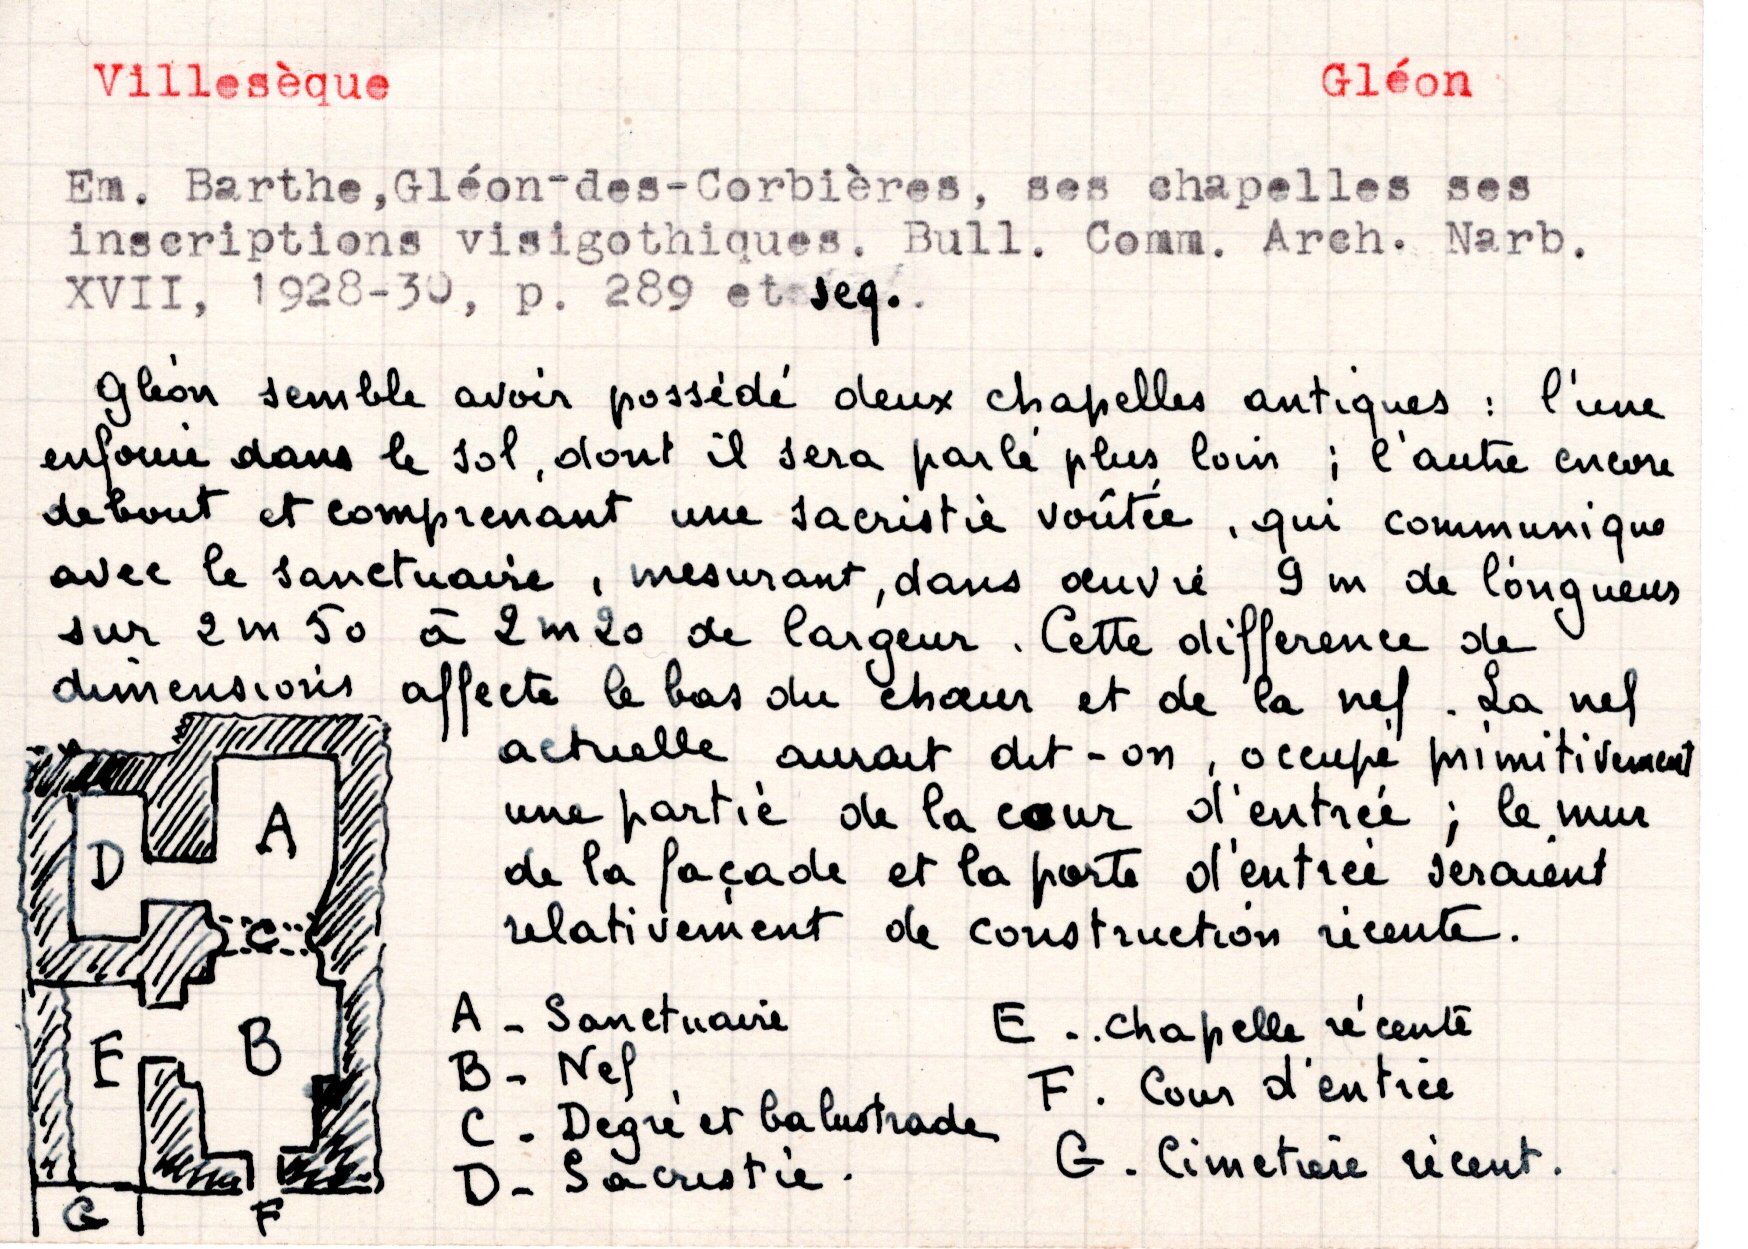 Villesèque Gléon
Em. Barthe, Gléon-des-Corbières, ses chapelles ses
inscriptions visigothiques. Bull. Comm. Arch. Narb.
XVII, 1928-30, p. 289 et seq..
Gléon semble avoir possédé deux chapelles antiques : l'une
enfouie dans le sol, dont il sera parlé plus loin ; l'autre encore
debout et comprenant une sacristie voûtée, qui communique
avec le sanctuaire, mesurant, dans œuvre 9 m de longueur
sur 2 m 50 à 2 m 20 de largeur. Cette différence de
dimensions affecte le bas du chœur et de la nef. La nef
actuelle aurait dit-on, occupé primitivement
une partie de la cour d'entrée ; le mur
de la façade et la porte d'entrée seraient
relativement de construction récente.
A - Sanctuaire
B - Nef
C - Degré et balustrade
D - Sacristie.
E - Chapelle récente
F. Cour d'entrée
G - Cimetière récent.
A
D
C
E B
G F